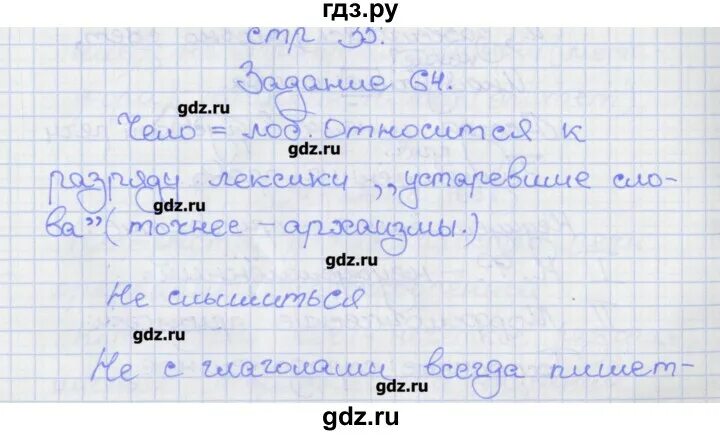 гдз.ру
стр 35.
Задание 64.
gdz.ru
Чело = лоб. Относится к
gdz.ru
разряду лексики ,,устаревшие сло-
gdz.ru
ва" (точнее – архаизмы.)
gdz.ru
Не слышиться
gdz.ru
Не с глаголами всегда пишет-
gdz.ru
gdz.ru